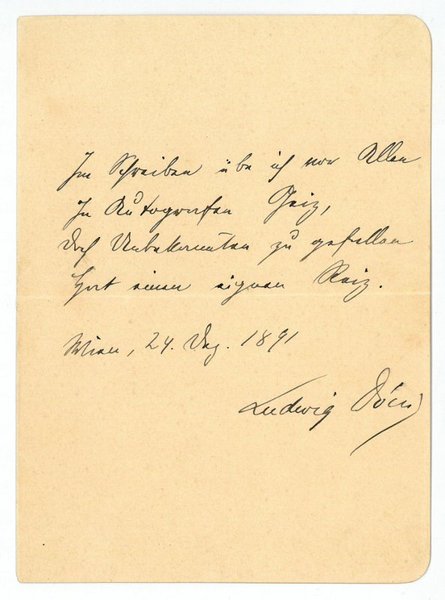 Im Schreiben übe ich vor Allem
In Autografen Geiz,
Doch Unbekannten zu gefallen
Hat einen eignen Reiz.
Wien, 24. Dez. 1891
Ludwig Dóczi